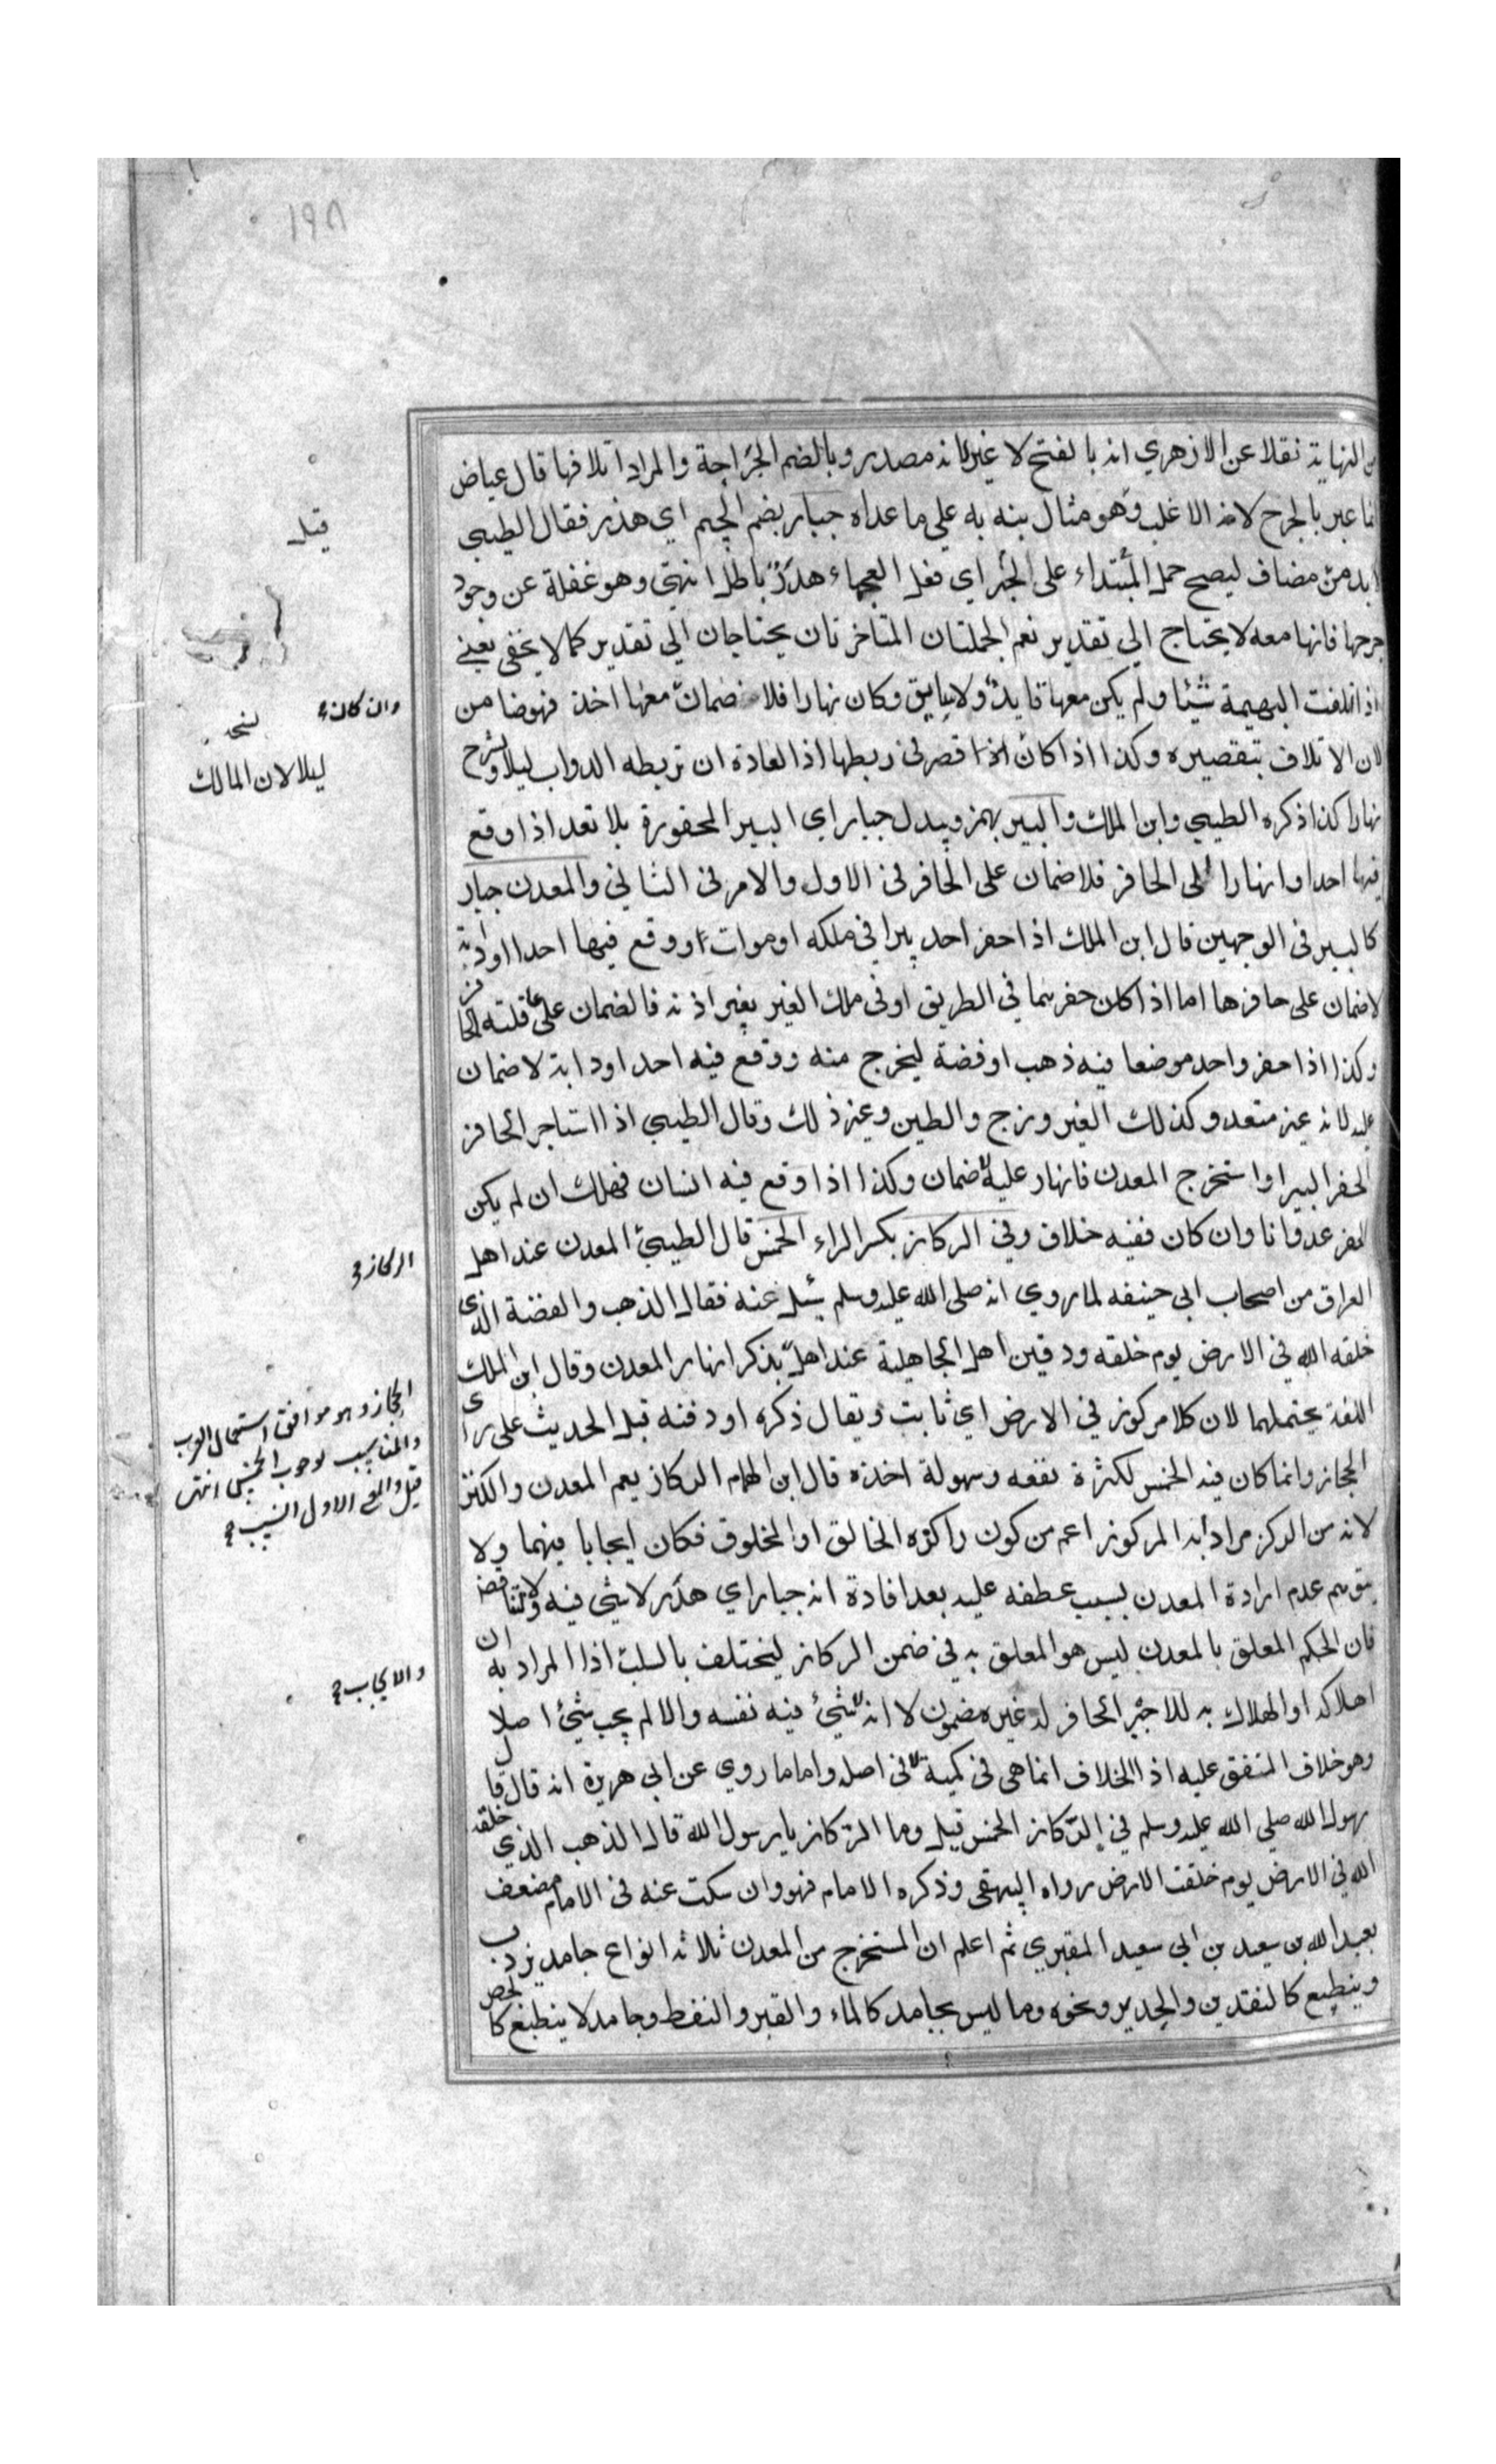 ١٩٨
من النهاية نقلا عن الازهري انه بالفتح لا غير لانه مصدر وبالضم الجراحة والمراد اتلافها قال عياض
انما عبر بالجرح لانه الاغلب وهو مثال نبه به على ما عداه جبار بضم الجيم اي هدر فقال الطيبي
لا بد من مضاف ليصح حمل المبتداء على الخبر اي فعل العجماء هدر باطل انتهى وهو غفلة عن وجود
جرحها فانها معه لا يحتاج الي تقدير نعم الجملتان المتاخرتان يحتاجان الي تقدير كما لا يخفى يعني
اذ اتلفت البهيمة شيئا ولم يكن معها قايد ولا سايق وكان نهارا فلا ضمان معها اخذ فهو ضامن
لان الاتلاف بتقصيره وكذا اذا كان قصر في ربطها اذ العادة ان تربطه الدواب ليلا وتسرح
نهارا كذا ذكره الطيبي وابن الملك والبير بهمز ويبدل جبار اي البير المحفورة بلا تعد اذا وقع
فيها احد او انهار على الحافر فلا ضمان على الحافر في الاول والامر في الثاني والمعدن جبار
كالبير في الوجهين قال ابن الملك اذا حفر احد بيرا في ملكه او موات ووقع فيها احد او دابة
لا ضمان على حافرها اما اذا كان حفرها في الطريق او في ملك الغير بغير اذنه فالضمان على عاقلته الحافر
وكذا اذا حفر واحد موضعا فيه ذهب او فضة ليخرج منه ووقع فيه احد او دابة لا ضمان
عليه لانه غير متعد وكذلك الفيروزج والطين وغير ذلك وقال الطيبي اذا استاجر الحافر
لحفر البير او استخرج المعدن فانهار عليه لا ضمان وكذا اذا وقع فيه انسان فهلك ان لم يكن
الحفر عدوانا وان كان ففيه خلاف وفي الركاز بكسر الراء الخمس قال الطيبي المعدن عند اهل
العراق من اصحاب ابي حنيفه لما روي انه صلى الله عليه وسلم سئل عنه فقال الذهب والفضة الذي
خلقه الله في الارض يوم خلقه ودفين اهل الجاهلية عند اهل بذكر انهار المعدن وقال ابن الملك
اللغة يحتملهما لان كلا مركوز في الارض اي ثابت ويقال ذكره او دفنه قبل الحديث على راى
الحجاز وانما كان فيه الخمس لكثرة نفعه وسهولة اخذه قال ابن الهام الركاز يعم المعدن والكنز
لانه من الركز مرادا به المركوز اعم من كون راكزه الخالق او المخلوق فكان ايجابا فيهما ولا
يتوهم عدم ارادة المعدن بسبب عطفه عليه بعد افادة انه جبار اي هدر لا شي فيه ولا لتناقض
فان الحكم المعلق بالمعدن ليس هو المعلق به في ضمن الركاز ليختلف بالسلب اذا المراد به ان
اهلاكه او الهلاك به للاجير الحافر له غير مضمون لا انه لا شيء فيه نفسه والا لم يجب شيء اصلا
وهو خلاف المتفق عليه اذ الخلاف انما هي في كمية لا في اصله واما ما روي عن ابي هريرة انه قال قال
رسول الله صلى الله عليه وسلم في الركاز الخمس قيل وما الركاز يا رسول الله قال الذهب الذي خلقه
الله في الارض يوم خلقت الارض رواه البيهقي وذكره الامام فهو وان سكت عنه في الامام مضعف
بعبد الله بن سعيد بن ابي سعيد المقبري ثم اعلم ان المستخرج من المعدن ثلاثة انواع جامد يذوب
وينطبع كالنقدين والحديد ونحوه وما ليس بجامد كالماء والقير والنفط وجامد لا ينطبع كالجص
قيل
وان كان
ليلا لان المالك
الركاز
الحجاز وهو موافق استعمال العرب
والمناسب لوجوب الخمس انتهى
قيل والمع الاول انسب
والايجاب